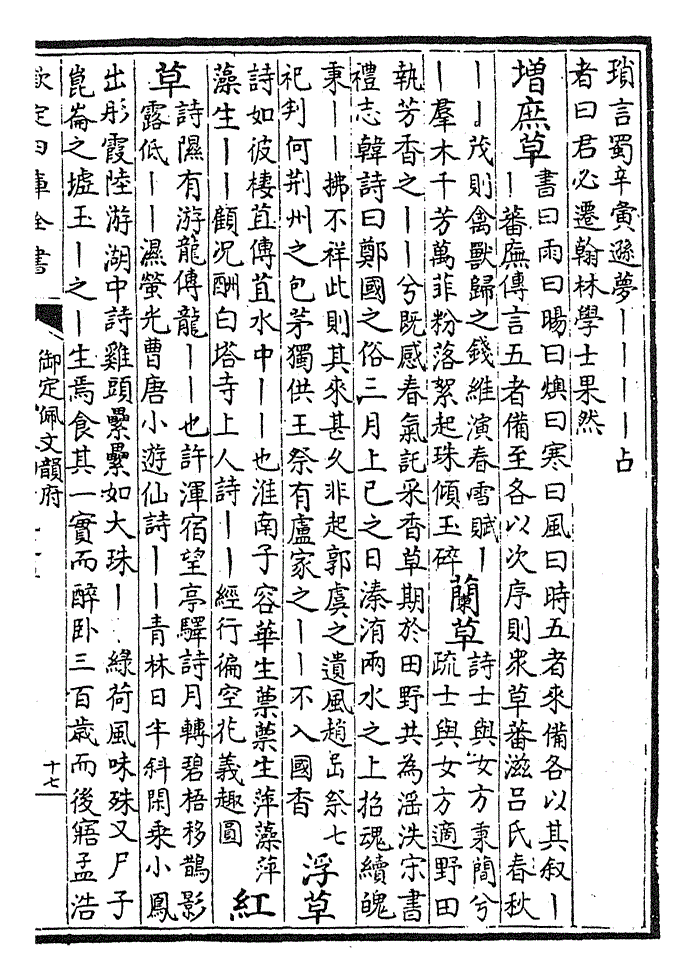 瑣言蜀辛夤遜夢丨丨丨丨占
者曰君必遷翰林學士果然
增庶草
書曰雨曰暘曰燠曰寒曰風曰時五者來備各以其叙丨
丨蕃廡傳言五者備至各以次序則衆草蕃滋吕氏春秋
丨丨茂則禽獸歸之錢維演春雪賦丨
丨羣木千芳萬菲粉落絮起珠傾玉碎
蘭草
詩士與女方秉蕳兮
疏士與女方適野田
執芳香之丨丨兮既感春氣託采香草期於田野共為淫泆宋書
禮志韓詩曰鄭國之俗三月上巳之日溱洧兩水之上招魂續魄
秉丨丨拂不祥此則其來甚久非起郭虞之遺風趙嵓祭七
祀判何荆州之包茅獨供王祭有廬家之丨丨不入國香
浮草
詩如彼棲苴傳苴水中丨丨也淮南子容華生蔈蔈生萍藻萍
藻生丨丨顧况酬白塔寺上人詩丨丨經行徧空花義趣圓
紅
草
詩隰有游龍傳龍丨丨也許渾宿望亭驛詩月轉碧梧移鵲影
露低丨丨濕螢光曹唐小遊仙詩丨丨青林日半斜閑乗小鳳
出彤霞陸游湖中詩雞頭纍纍如大珠丨丨緑荷風味殊又尸子
崑崙之墟玉丨之丨生焉食其一實而醉卧三百歲而後寤孟浩
欽定四庫全書
御定佩文韻府
十七